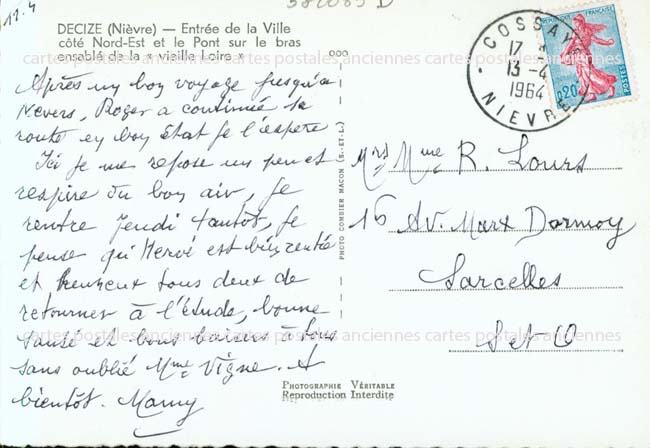 11.4
382085 D
DECIZE (Nièvre) — Entrée de la Ville
côté Nord-Est et le Pont sur le bras
ensablé de la « vieille Loire »
Après un bon voyage jusqu'à
Nevers, Roger a continué sa
route en bon état je l'espère
Ici je me repose un peu et
respire du bon air, je
rentre Jeudi tantôt, je
pense qu'Hervé est bien rentré
et heureux tous deux de
retourner à l'étude, bonne
santé et bons baisers à tous
sans oublié Mme Vigne. A
bientôt. Mamy
PHOTO COMBIER MACON (S.-ET-L.)
COSSAYE
17 H
13-4
1964
NIEVRE
RÉPUBLIQUE FRANÇAISE
0,20
POSTES
Mrs Mme R. Lours
16 Av. Marx Dormoy
Sarcelles
Set-O
cartes postales anciennes cartes postales anciennes cartes postales anciennes
PHOTOGRAPHIE VÉRITABLE
Reproduction Interdite